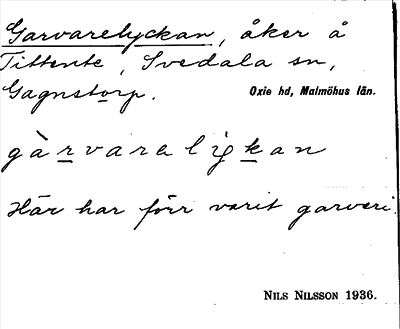 Garvarelyckan, åker å
Tittente, Svedala sn,
Gagnstorp. Oxie hd, Malmöhus län.
gàrvaralykan
Här har förr varit garveri.
NILS NILSSON 1936.